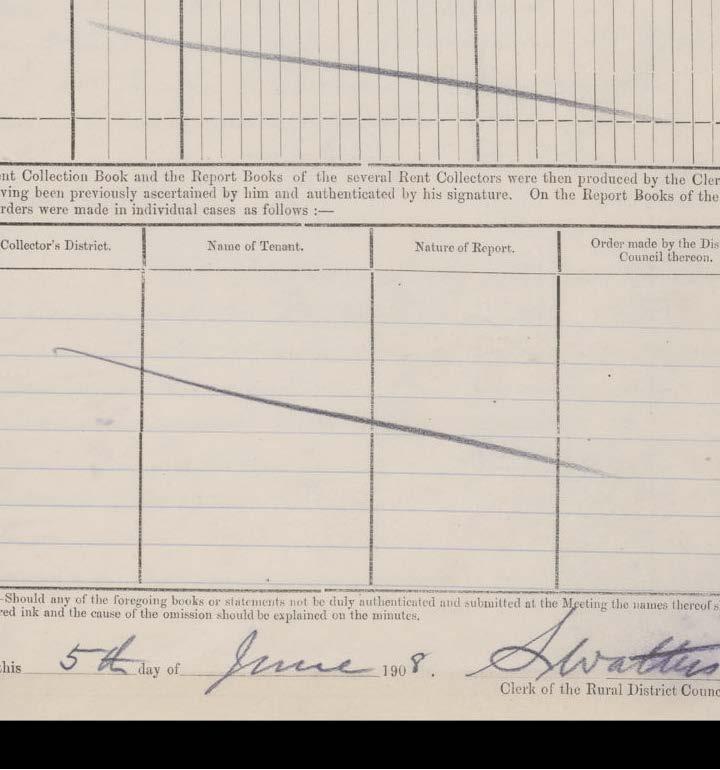 nt Collection Book and the Report Books of the several Rent Collectors were then produced by the Cler
ving been previously ascertained by him and authenticated by his signature. On the Report Books of the
rders were made in individual cases as follows :—
Collector's District. Name of Tenant. Nature of Report. Order made by the Dis
Council thereon.
-Should any of the foregoing books or statements not be duly authenticated and submitted at the Meeting the names thereof s
red ink and the cause of the omission should be explained on the minutes.
this 5th day of June 1908.
Clerk of the Rural District Counc